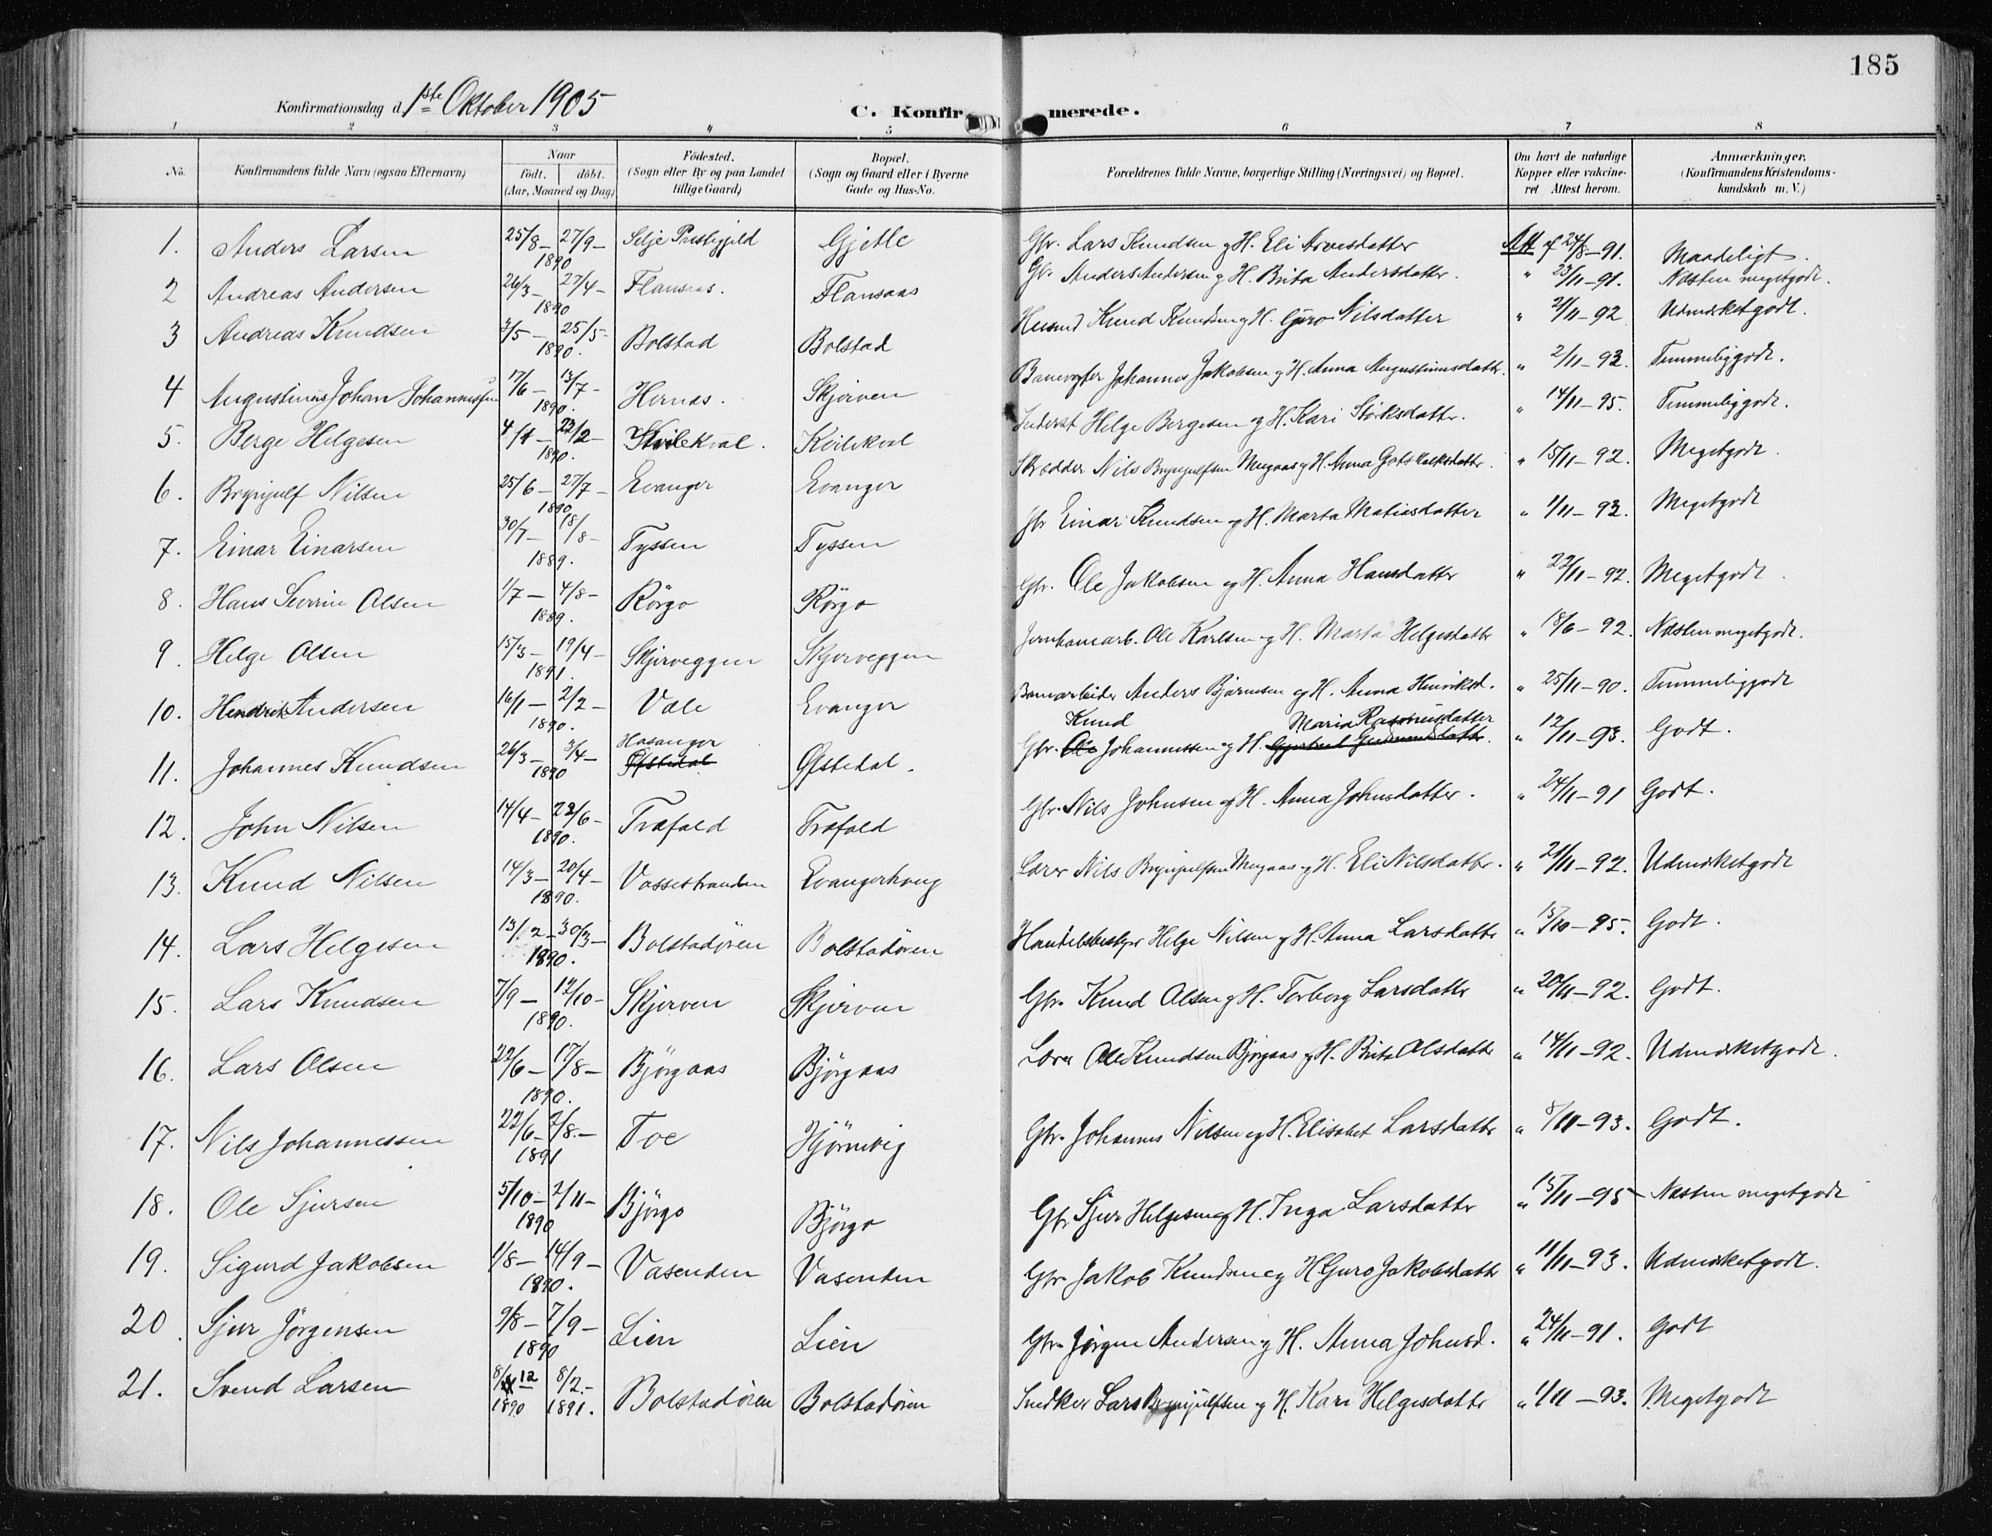 185
Konfirmationsdag d. 1ste Oktober 1905
C. Konfirmerede.
1 2 3 4 5 6 7 8
No. Konfirmandens fulde Navn (ogsaa Efternavn) Naar født. døbt. (Aar, Maaned og Dag) Fødested. (Sogn eller By og paa Landet tillige Gaard) Bopæl. (Sogn og Gaard eller i Byerne Gade og Hus-No. Forældrenes fulde Navne, borgerlige Stilling (Næringsvei) og Bopæl. Om havt de naturlige Kopper eller vakcineret Attest herom. Anmærkninger. (Konfirmandens Kristendomskundskab m. V.)
1. Anders Larsen 25/8 – 27/9 – 1890 Selje Præstegjeld Gjelle Gbr. Lars Knudsen og H. Eli Arvesdatter Att. af 24/8 – 91. Maadeligt.
2 Andreas Andersen 26/3 – 27/4 – 1890 Flansaas. Flansaas Gbr. Anders Andersen og H. Brita Andersdatter. " 23/11 – 91. Næsten megetgodt.
3 Andreas Knudsen 3/5 – 25/5 – 1890. Bolstad Bolstad Husmd Knud Knudsen og H. Guro Nilsdatter " 2/11 – 92 Udmerketgodt.
4 Augustinus Johan Johannessen 17/6 – 13/7 – 1890. Hernes. Skjerven Banevogter Johannes Jakobsen og H. Anna Augustinusdatter. " 2/11 – 93. Temmeliggodt.
5. Berge Helgesen 4/1 – 23/2 – 1890. Kvilekval. Kvilekval Inderst Helge Bergesen og H. Kari Størksdatter. " 14/11 – 95. Temmeliggodt.
6. Brynjulf Nilsen 25/6 – 27/7 – 1890 Evanger Evanger Skrædder Nils Brynjulfsen Mugaas og H. Anna Gotskalksdatter. " 15/11 – 92. Megetgodt.
7. Einar Einarsen 30/7 – 18/8 – 1889. Tyssen Tyssen Gbr Einar Knudsen og H. Marta Matiasdatter " 1/11 – 93. Megetgodt
8. Hans Severin Olsen 1/7 – 4/8 – 1889. Rørgo Rørgo Gbr. Ole Jakobsen og H. Anna Hansdatter " 22/11 – 92. Megetgodt
9. Helge Olsen 15/3 – 19/4 – 1891. Skjerveggen Skjerveggen Jernbanearb. Ole Karlsen og H. Marta Helgesdatter " 18/6 – 92. Næsten megetgodt.
10. Hendrik Andersen 16/1 – 2/2 – 1890. Vale Evanger Banearbeider Anders Bjarnesen og H. Anna Henriksd. " 25/11 – 90. Temmeliggodt
11. Johannes Knudsen 26/3 – 3/4 – 1890 Hosanger Øfstedal Øfstedal. Gbr. Ole Knud Johannessen og H. Gjertrud Gudmundsdatter Maria Rasmusdatter. " 12/11 – 93. Godt.
12. John Nilsen 14/4 – 22/6 – 1890. Træfald Træfald Gbr. Nils Johnsen og H. Anna Johnsdatter. " 24/11 – 91 Godt.
13. Knud Nilsen 14/3 – 20/4 – 1890. Vossestranden Lærer Nils Brynjulfsen Mugaas og H. Eli Nilsdatter. " 21/11 – 92. Udmerketgodt
14. Lars Helgesen 13/2 – 30/3 – 1890. Bolstadøren Bolstadøren Handelsbestyrer Helge Nilsen og H. Anna Larsdatter " 15/10 – 95. Godt.
15. Lars Knudsen 7/9 – 12/10 – 1890. Skjerven Skjerven Gbr. Knud Olsen og H. Torborg Larsdatter " 20/11 – 92. Godt.
16. Lars Olsen 22/6 – 17/8 – 1890. Bjørgaas Bjørgaas Lærer Ole Knudsen Bjørgaas og H. Brita Olsdatter " 14/11 – 92. Udmerketgodt.
17. Nils Johannessen 22/6 – 2/8 – 1891 Toe Hjørnevig Gbr. Johannes Nilsen og H. Elisabet Larsdatter " 8/11 – 93. Godt.
18. Ole Sjursen 5/10 – 2/11 – 1890 Bjørgo Bjørgo Gbr Sjur Helgesen og H. Inga Larsdatter " 15/11 – 95 – Næsten megetgodt
19. Sigurd Jakobsen 1/8 – 14/9 – 1890. Vasenden Vasenden Gbr. Jakob Knudsen og H. Guro Jakobsdatter " 11/11 – 93. Udmerketgodt.
20. Sjur Jørgensen 9/8 – 7/9 – 1890 Lien Lien Gbr. Jørgen Andersen og H. Anna Johnsd. " 24/11 – 91. Godt
21. Svend Larsen 8/12 1890 8/2 – 1891. Bolstadøren Bolstadøren Snedker Lars Brynjulfsen og H. Kari Helgesdatter " 1/11 – 93. Megetgodt